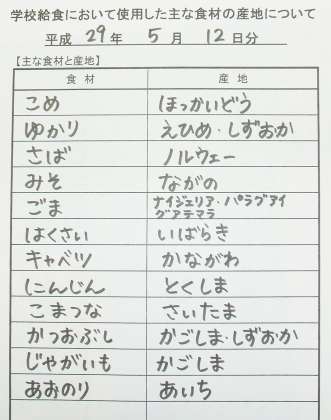 学校給食において使用した主な食材の産地について
平成 29 年 5 月 12 日分
【主な食材と産地】
食材 産地
こめ ほっかいどう
ゆかり えひめ・しずおか
さば ノルウェー
みそ ながの
ごま ナイジェリア・パラグアイ
グアテマラ
はくさい いばらき
キャベツ かながわ
にんじん とくしま
こまつな さいたま
かつおぶし かごしま・しずおか
じゃがいも かごしま
あおのり あいち